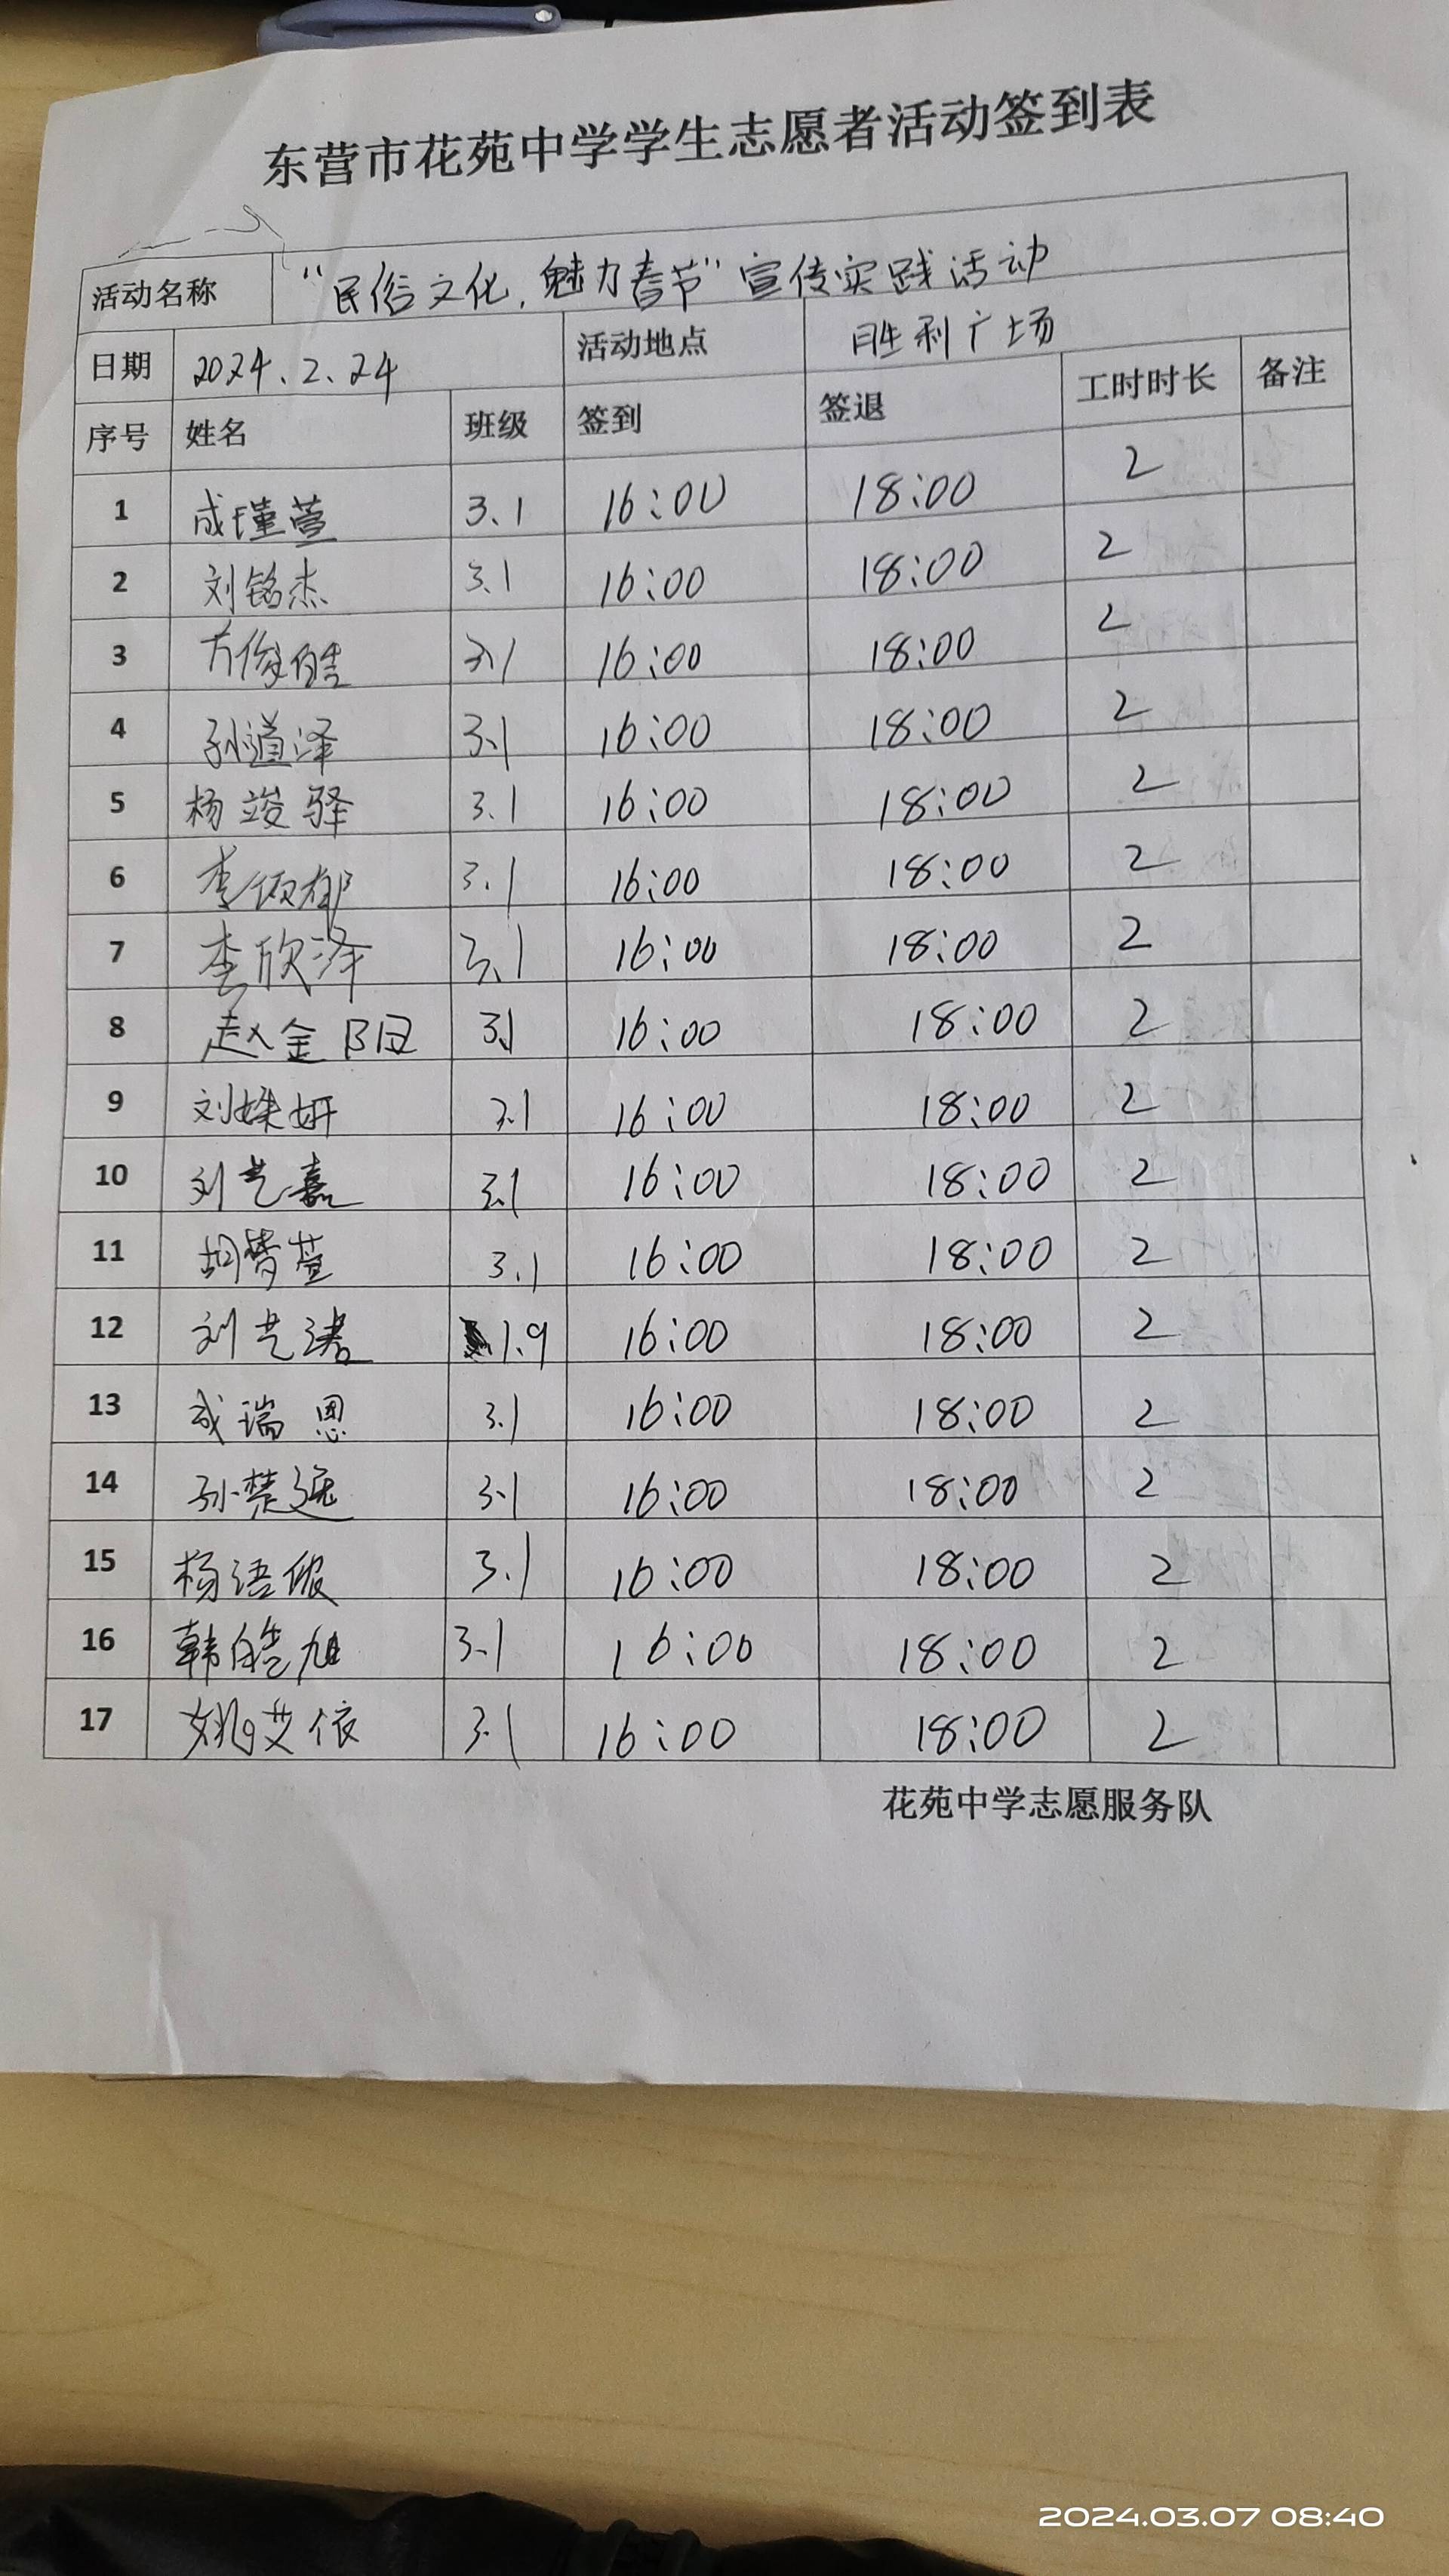 东营市花苑中学学生志愿者活动签到表
活动名称 “民俗文化,魅力春节”宣传实践活动
日期 2024.2.24 活动地点 胜利广场
序号 姓名 班级 签到 签退 工时时长 备注
1 成瑾萱 3.1 16:00 18:00 2
2 刘铭杰 3.1 16:00 18:00 2
3 方俊皓 3.1 16:00 18:00 2
4 孙道泽 3.1 16:00 18:00 2
5 杨竣驿 3.1 16:00 18:00 2
6 李颂郁 3.1 16:00 18:00 2
7 李欣泽 3.1 16:00 18:00 2
8 赵金阳 3.1 16:00 18:00 2
9 刘姝妍 3.1 16:00 18:00 2
10 刘艺嘉 3.1 16:00 18:00 2
11 胡梦萱 3.1 16:00 18:00 2
12 刘艺诺 1.9 16:00 18:00 2
13 成瑞恩 3.1 16:00 18:00 2
14 孙楚遥 3.1 16:00 18:00 2
15 杨语 3.1 16:00 18:00 2
16 韩皓旭 3.1 16:00 18:00 2
17 姚艾依 3.1 16:00 18:00 2
花苑中学志愿服务队
2024.03.07 08:40